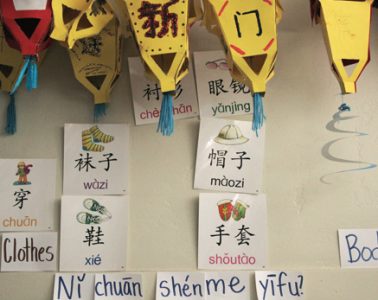 新
门
衬衫
chènshān
眼镜
yǎnjìng
袜子
wàzi
帽子
màozi
穿
chuān
鞋
xié
手套
shǒutào
Clothes
Nǐ chuān shénme yīfu?